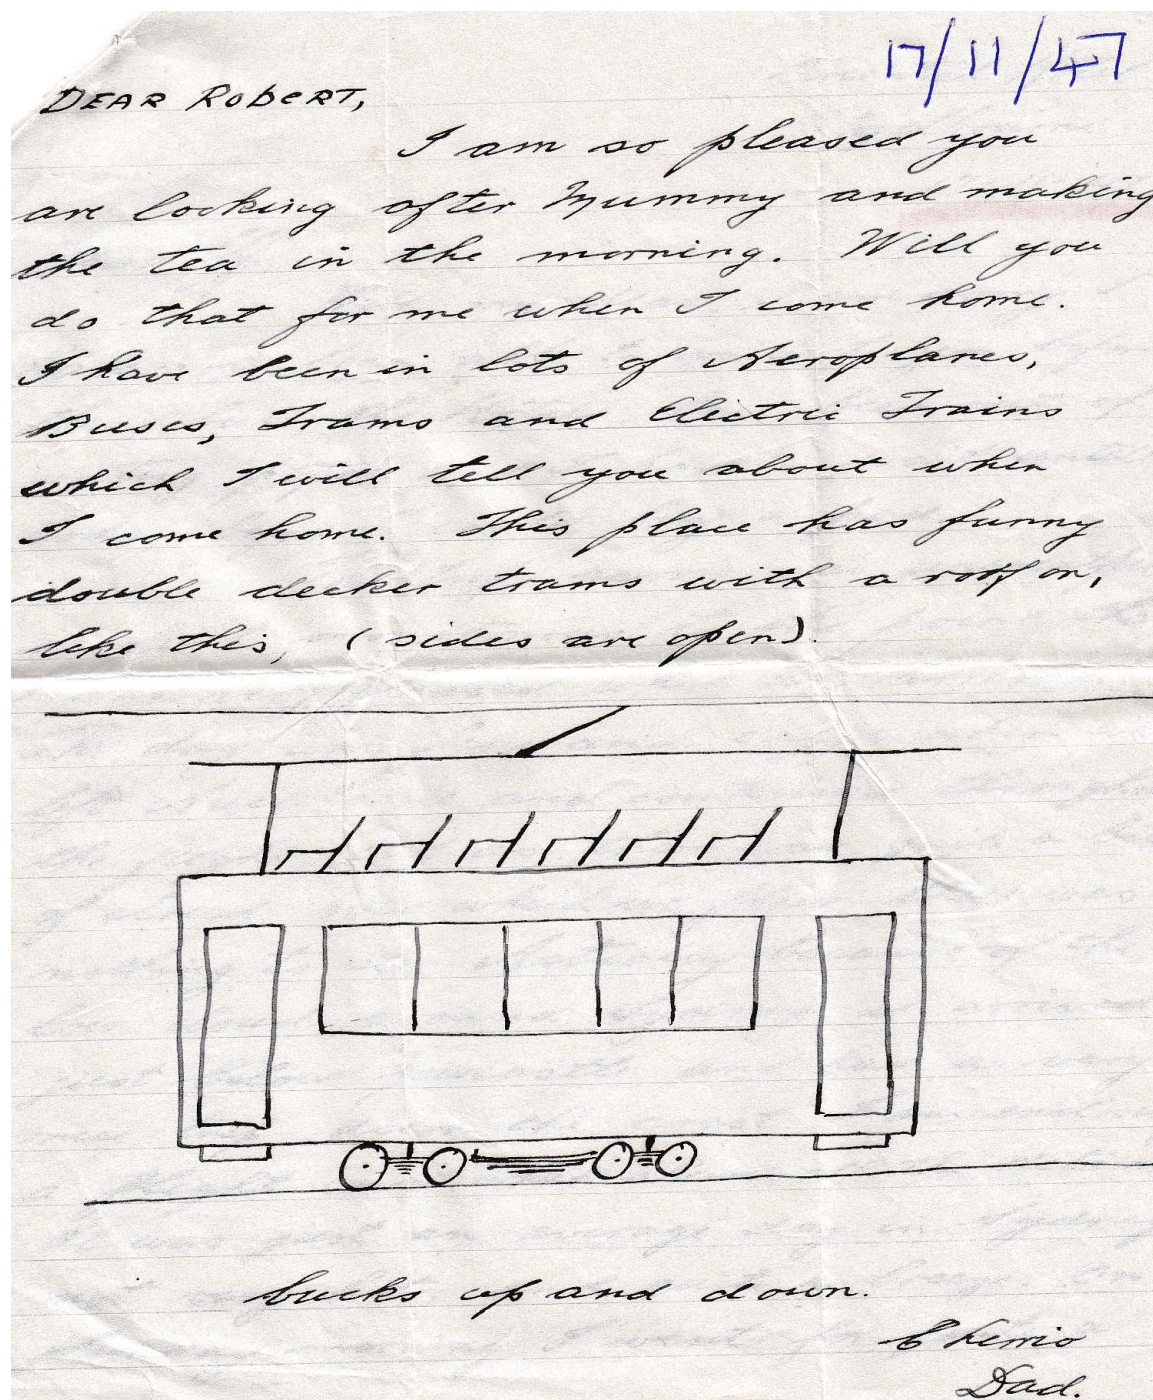 17/11/47
DEAR RobeRT,
I am so pleased you
are looking after Mummy and making
the tea in the morning. Will you
do that for me when I come home.
I have been in lots of Aeroplanes,
Buses, Trams and Electric Trains
which I will tell you about when
I come home. This place has funny
double decker trams with a roof on,
like this, (sides are open).
bucks up and down.
Cherrio
Dad.